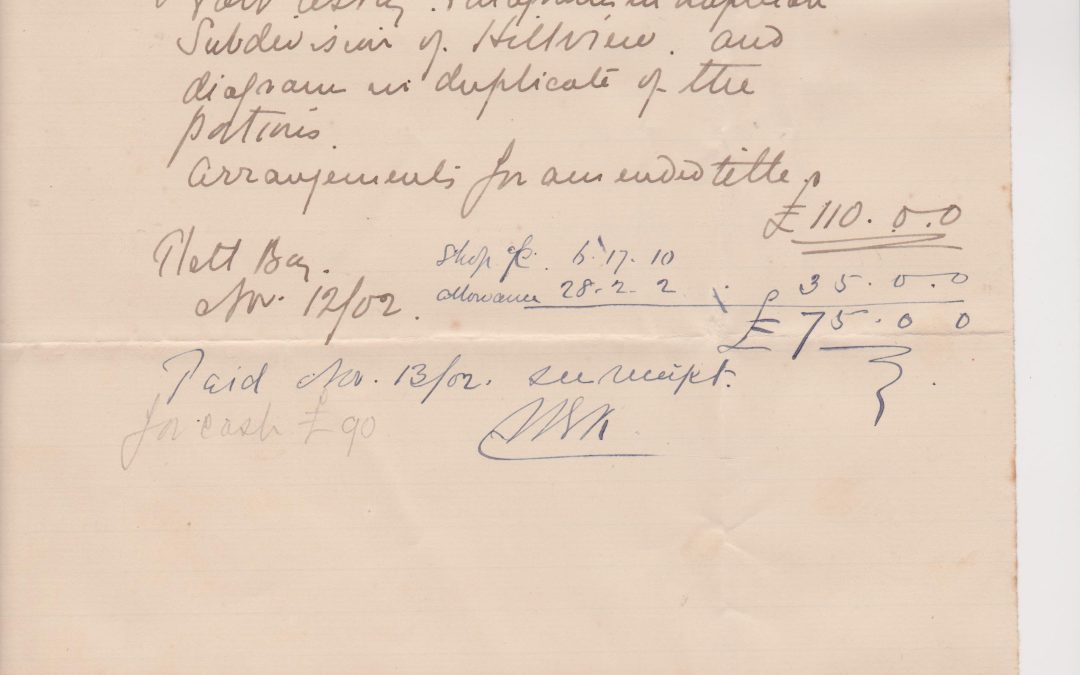 Diagram in duplicate
Subdivision of Hillview. and
diagram in duplicate of the
portions.
Arrangements for amended title.
£110. 0. 0
Plett Bay.
Nov. 12/02.
Shop a/c. 6. 17. 10
allowance 28. 2. 2
35. 0. 0
£75. 0 0
Paid Nov. 13/02. see receipt.
for cash £90